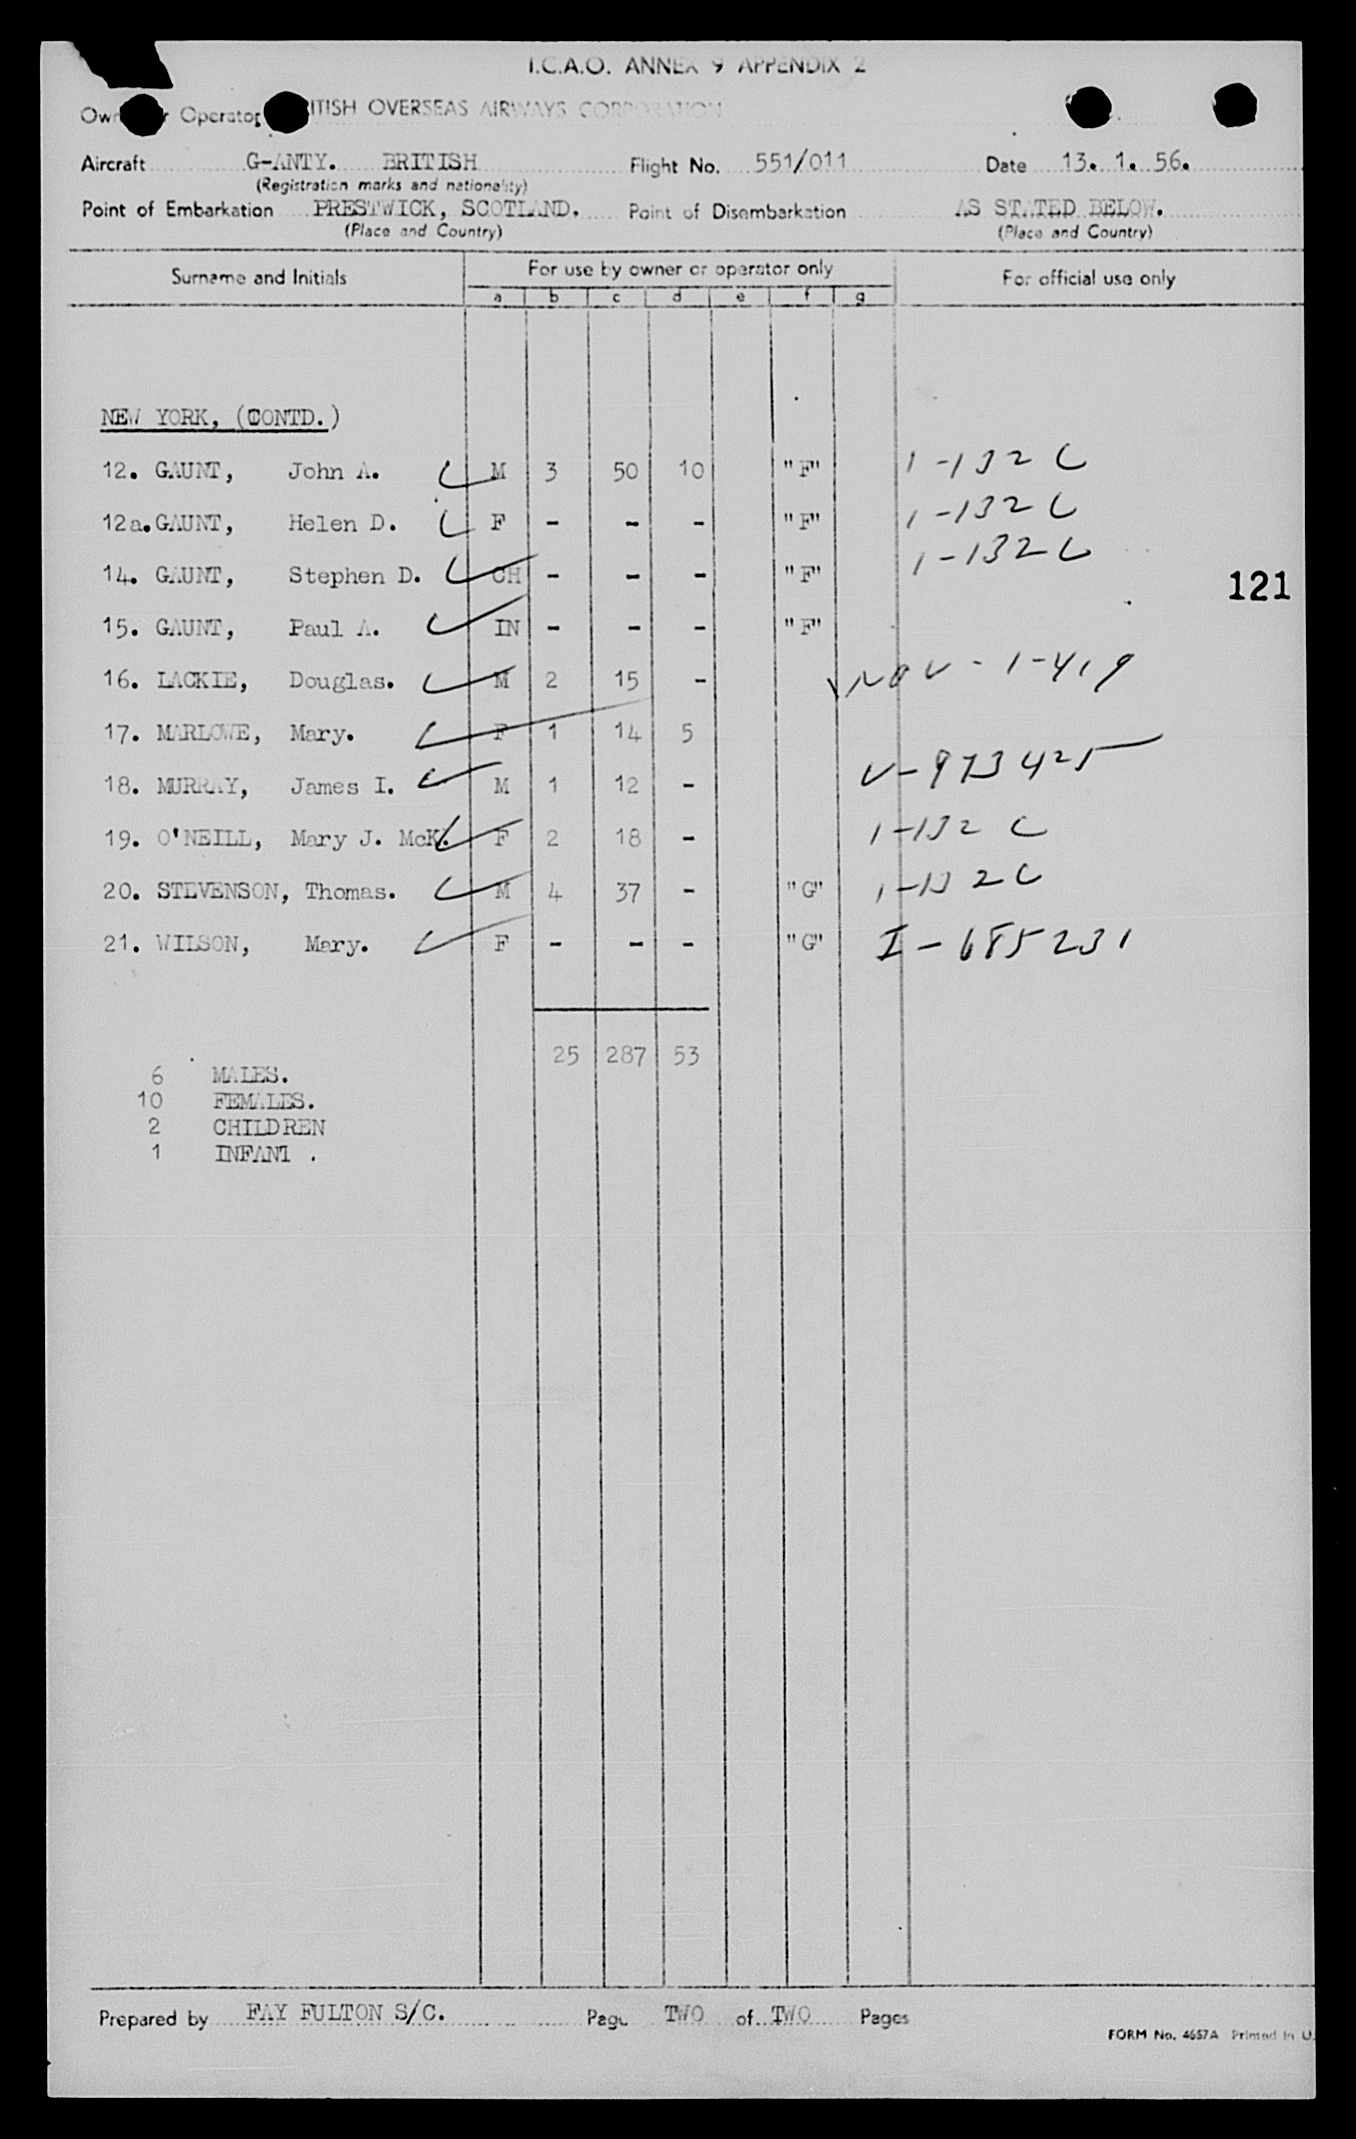 I.C.A.O. ANNEX 9 APPENDIX 2
Operator BRITISH OVERSEAS AIRWAYS CORPORATION
Aircraft G-ANTY. BRITISH Flight No. 551/011 Date 13. 1. 56.
(Registration marks and nationality)
Point of Embarkation PRESTWICK, SCOTLAND. Point of Disembarkation AS STATED BELOW.
(Place and Country) (Place and Country)
Surname and Initials For use by owner or operator only For official use only
a b c d e f g
NEW YORK, (CONTD.)
12. GAUNT, John A. M 3 50 10 "F" 1-132 C
12a. GAUNT, Helen D. F - - - "F" 1-132 C
14. GAUNT, Stephen D. CH - - - "F" 1-132 C
121
15. GAUNT, Paul A. IN - - - "F"
16. LACKIE, Douglas. M 2 15 - NOV - 1-419
17. MARLOWE, Mary. F 1 14 5
18. MURRAY, James I. M 1 12 - V-973425
19. O'NEILL, Mary J. McK. F 2 18 - 1-132 C
20. STEVENSON, Thomas. M 4 37 - "G" 1-132 C
21. WILSON, Mary. F - - - "G" I-685231
25 287 53
6 MALES.
10 FEMALES.
2 CHILDREN
1 INFANT .
Prepared by FAY FULTON S/C. Page TWO of TWO Pages
FORM No. 4657A Printed in U.